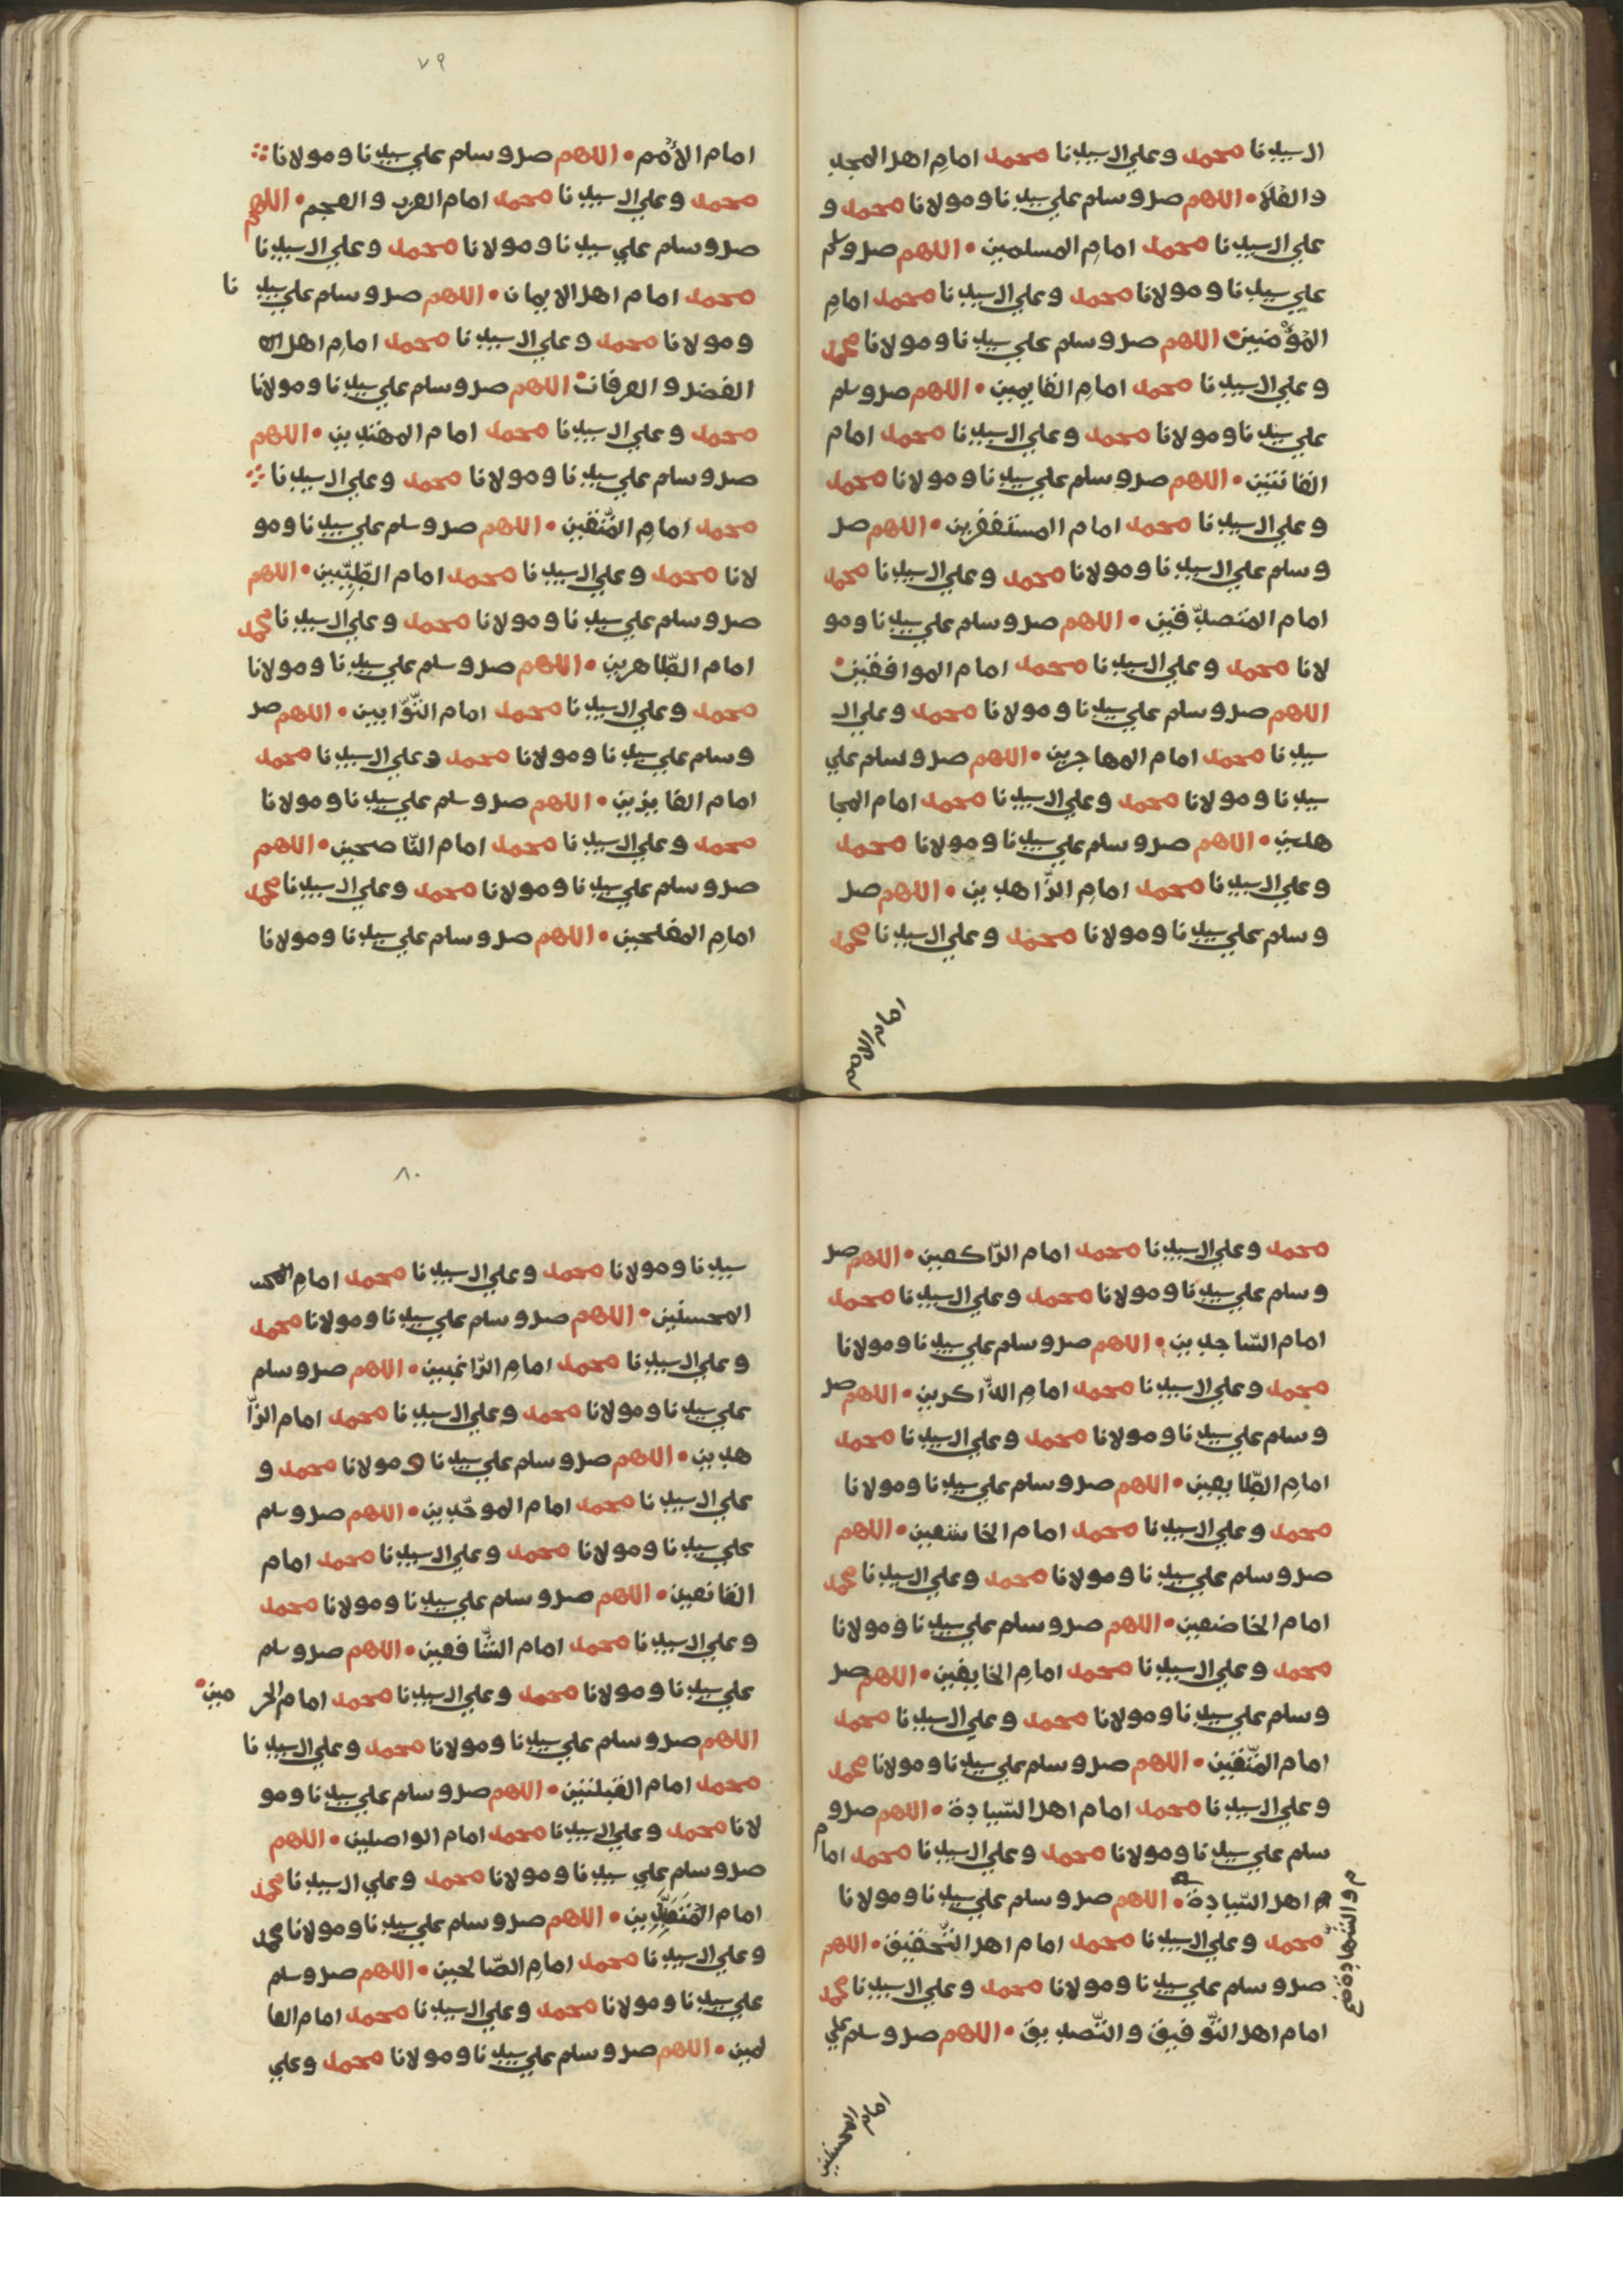 ال سيدنا محمد وعلي ال سيدنا محمد امام اهل المجد
و الفلا • اللهم صل وسلم علي سيدنا ومولانا محمد و
علي ال سيدنا محمد امام المسلمين • اللهم صل وسلم
علي سيدنا ومولانا محمد وعلي ال سيدنا محمد امام
المؤمنين • اللهم صل وسلم علي سيدنا ومولانا محمد
وعلي ال سيدنا محمد امام القايمين • اللهم صل وسلم
علي سيدنا ومولانا محمد وعلي ال سيدنا محمد امام
القانتين • اللهم صل وسلم علي سيدنا ومولانا محمد
وعلي ال سيدنا محمد امام المستغفرين • اللهم صل
وسلم علي ال سيدنا ومولانا محمد وعلي ال سيدنا محمد
امام المتصدّقين • اللهم صل وسلم علي سيدنا ومو
لانا محمد وعلي ال سيدنا محمد امام الموافقين •
اللهم صل وسلم علي سيدنا ومولانا محمد وعلي ال
سيدنا محمد امام المهاجرين • اللهم صل وسلم علي
سيدنا ومولانا محمد وعلي ال سيدنا محمد امام المجا
هدين • اللهم صل وسلم علي سيدنا ومولانا محمد
وعلي ال سيدنا محمد امام الزّاهدين • اللهم صل
وسلم علي سيدنا ومولانا محمد وعلي ال سيدنا محمد
امام الامم
٧٩
امام الأمم • اللهم صل وسلم علي سيدنا ومولانا
محمد وعلي ال سيدنا محمد امام العرب والعجم • اللهم
صل وسلم علي سيدنا ومولانا محمد وعلي ال سيدنا
محمد امام اهل الايمان • اللهم صل وسلم علي سيدنا
ومولانا محمد وعلي ال سيدنا محمد امام اهل
الفضل والعرفان • اللهم صل وسلم علي سيدنا ومولانا
محمد وعلي ال سيدنا محمد امام المهتدين • اللهم
صل وسلم علي سيدنا ومولانا محمد وعلي ال سيدنا
محمد امام المتّقين • اللهم صل وسلم علي سيدنا ومو
لانا محمد وعلي ال سيدنا محمد امام الطّيّبين • اللهم
صل وسلم علي سيدنا ومولانا محمد وعلي ال سيدنا محمد
امام الطّاهرين • اللهم صل وسلم علي سيدنا ومولانا
محمد وعلي ال سيدنا محمد امام التّوّابين • اللهم صل
وسلم علي سيدنا ومولانا محمد وعلي ال سيدنا محمد
امام الفايزين • اللهم صل وسلم علي سيدنا ومولانا
محمد وعلي ال سيدنا محمد امام النّاصحين • اللهم
صل وسلم علي سيدنا ومولانا محمد وعلي ال سيدنا محمد
امام المفلحين • اللهم صل وسلم علي سيدنا ومولانا
محمد وعلي ال سيدنا محمد امام الرّاكعين • اللهم صل
وسلم علي سيدنا ومولانا محمد وعلي ال سيدنا محمد
امام السّاجدين • اللهم صل وسلم علي سيدنا ومولانا
محمد وعلي ال سيدنا محمد امام الذّاكرين • اللهم صل
وسلم علي سيدنا ومولانا محمد وعلي ال سيدنا محمد
امام الطّايعين • اللهم صل وسلم علي سيدنا ومولانا
محمد وعلي ال سيدنا محمد امام الخاشعين • اللهم
صل وسلم علي سيدنا ومولانا محمد وعلي ال سيدنا محمد
امام الخاضعين • اللهم صل وسلم علي سيدنا ومولانا
محمد وعلي ال سيدنا محمد امام الخايفين • اللهم صل
وسلم علي سيدنا ومولانا محمد وعلي ال سيدنا محمد
امام المتّقين • اللهم صل وسلم علي سيدنا ومولانا محمد
وعلي ال سيدنا محمد امام اهل السّيادة • اللهم صل و
سلم علي سيدنا ومولانا محمد وعلي ال سيدنا محمد امام
اهل السّيادة • اللهم صل وسلم علي سيدنا ومولانا
والشّهادة
محمد وعلي ال سيدنا محمد امام اهل التّحقيق • اللهم
صل وسلم علي سيدنا ومولانا محمد وعلي ال سيدنا محمد
امام اهل التّوفيق والتّصديق • اللهم صل وسلم علي
امام المحسنين
٨٠
سيدنا ومولانا محمد وعلي ال سيدنا محمد امام
المحسنين • اللهم صل وسلم علي سيدنا ومولانا محمد
وعلي ال سيدنا محمد امام الرّاغبين • اللهم صل وسلم
علي سيدنا ومولانا محمد وعلي ال سيدنا محمد امام الزّا
هدين • اللهم صل وسلم علي سيدنا ومولانا محمد و
علي ال سيدنا محمد امام الموحّدين • اللهم صل وسلم
علي سيدنا ومولانا محمد وعلي ال سيدنا محمد امام
القانعين • اللهم صل وسلم علي سيدنا ومولانا محمد
وعلي ال سيدنا محمد امام الشّافعين • اللهم صل وسلم
علي سيدنا ومولانا محمد وعلي ال سيدنا محمد امام الحرمين •
اللهم صل وسلم علي سيدنا ومولانا محمد وعلي ال سيدنا
محمد امام القبلتين • اللهم صل وسلم علي سيدنا ومو
لانا محمد وعلي ال سيدنا محمد امام الواصلين • اللهم
صل وسلم علي سيدنا ومولانا محمد وعلي ال سيدنا محمد
امام • اللهم صل وسلم علي سيدنا ومولانا محمد
وعلي ال سيدنا محمد امام الصّالحين • اللهم صل وسلم
علي سيدنا ومولانا محمد وعلي ال سيدنا محمد امام العا
لمين • اللهم صل وسلم علي سيدنا ومولانا محمد وعلي